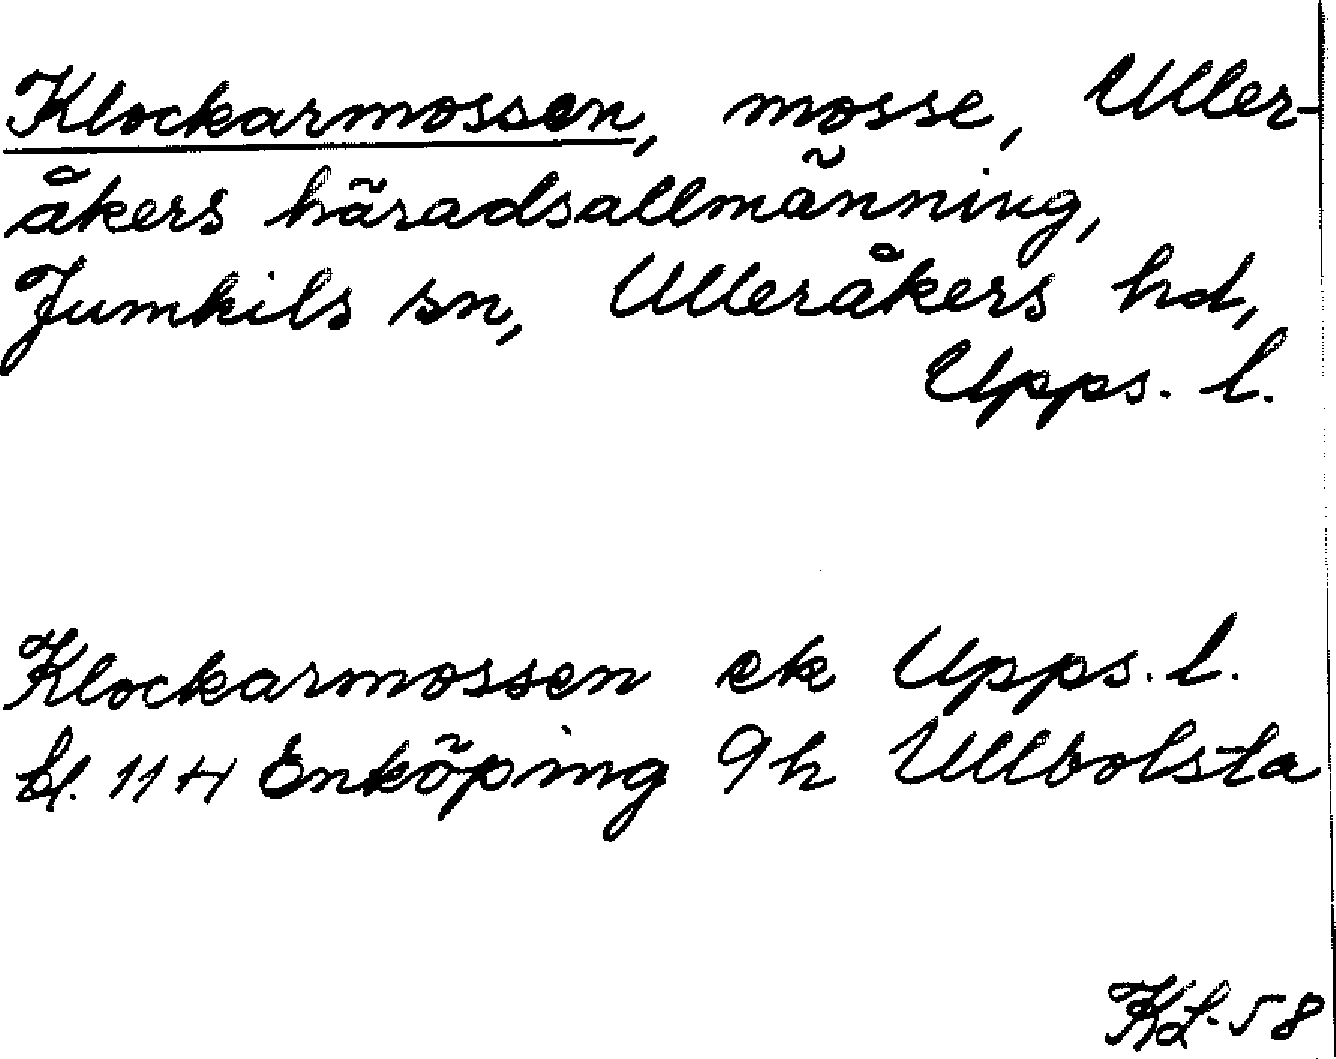 Klockarmossen, mosse, Uller-
åkers häradsallmänning,
Jumkils sn, Ulleråkers hd,
Upps. l.
Klockarmossen ek Upps. l.
bl. 114 Enköping 9h Ullbolsta
KL-58